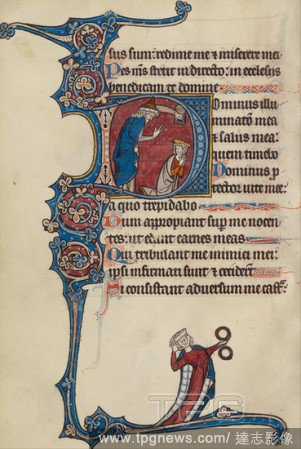 sus sum: redime me ⁊ miserere mei
Pes m̄s stetit in directo: in ecclesiis
benedicam te domine
Dominus illu
minatio mea
⁊ salus mea:
quem timebo
Dominus p
tector vite mee:
a quo trepidabo
Dum appropiant sup me nocen
tes: ut edant carnes meas
Qui tribulant me inimici mei:
ipsi infirmati sunt ⁊ ceciderunt
Si consistant adversum me cast
TPG
www.tpgnews.com / 達志影像